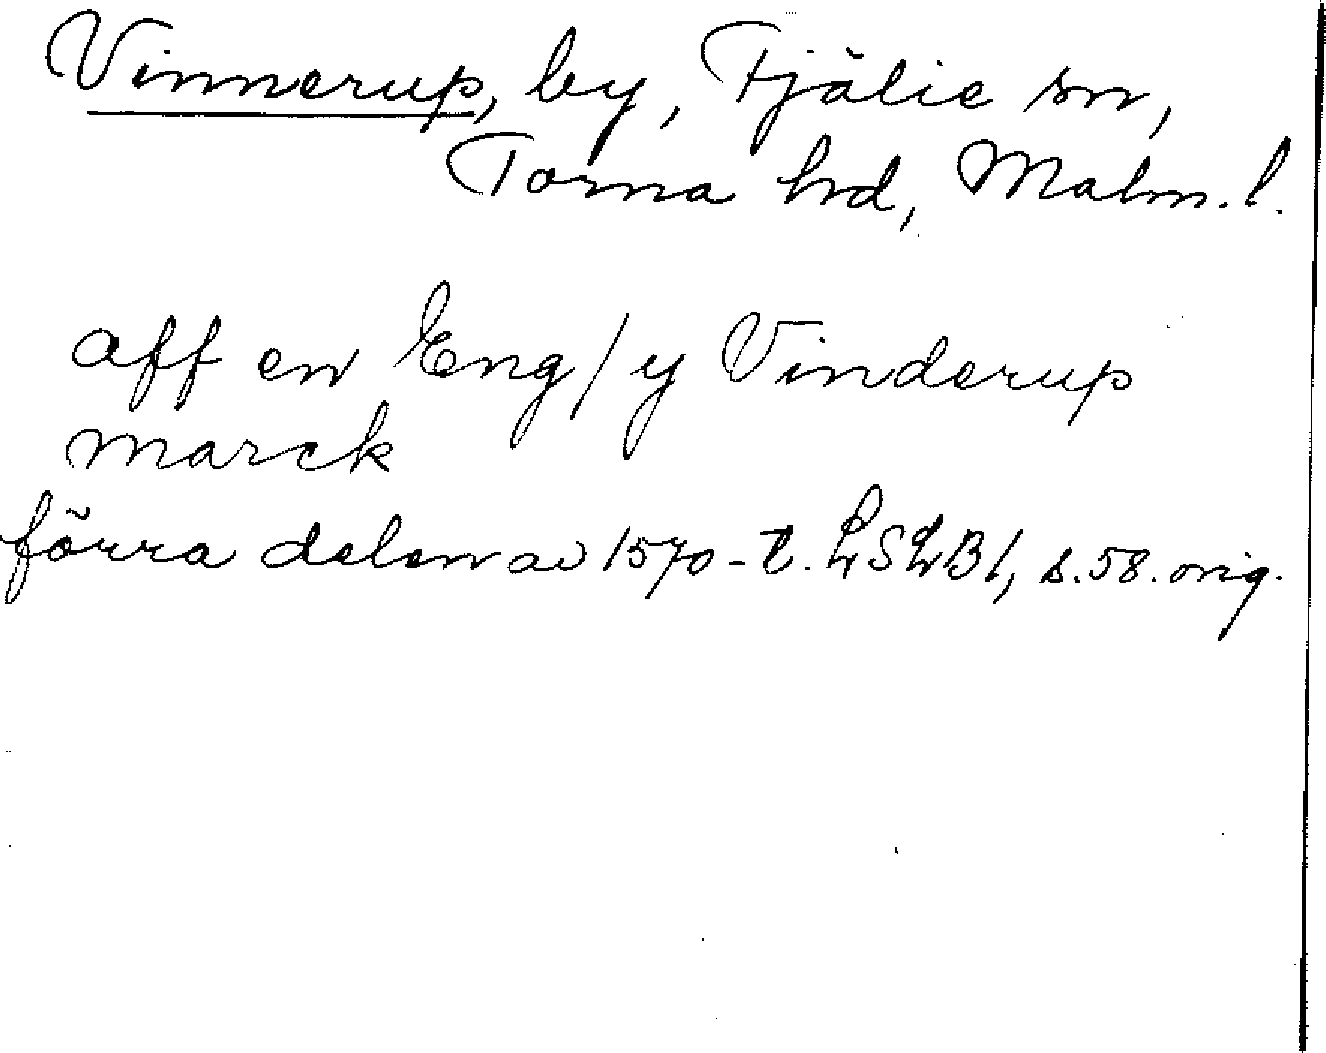 Vinnerup, by, Fjälie sn,
Torna hd, Malm. l.
aff en Eng / y Vinderup
marck
förra delen av 1570-t. LSLB 1, s. 58. orig.